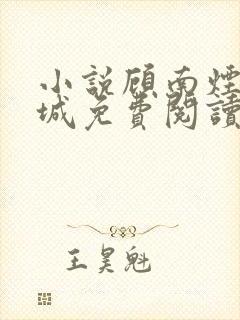 小說顾南煙
城免費閱讀
王昊魁